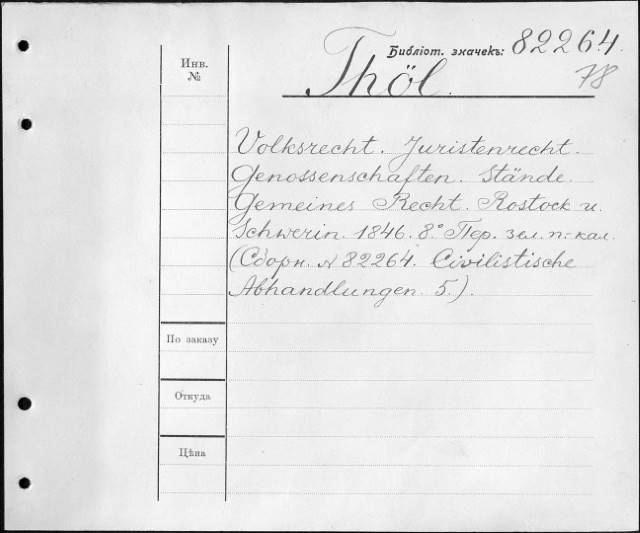 Библіот. значекъ: 82264.
78
Thöl.
Инв.
№
Volksrecht. Juristenrecht.
Genossenschaften. Stände.
Gemeines Recht. Rostock u.
Schwerin. 1846. 8° Пер. зел. п.-кал.
(Сборн. № 82264. Civilistische
Abhandlungen. 5.).
По заказу
Откуда
Цѣна